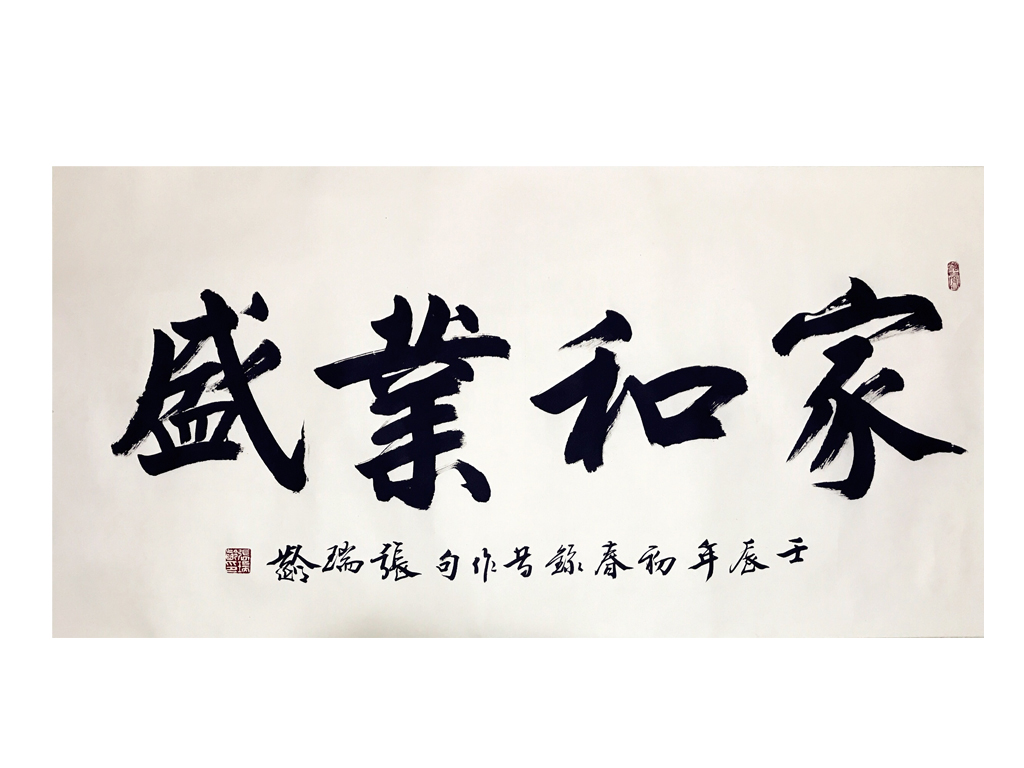 家和業盛
壬辰年初春錄昔作句張瑞齡